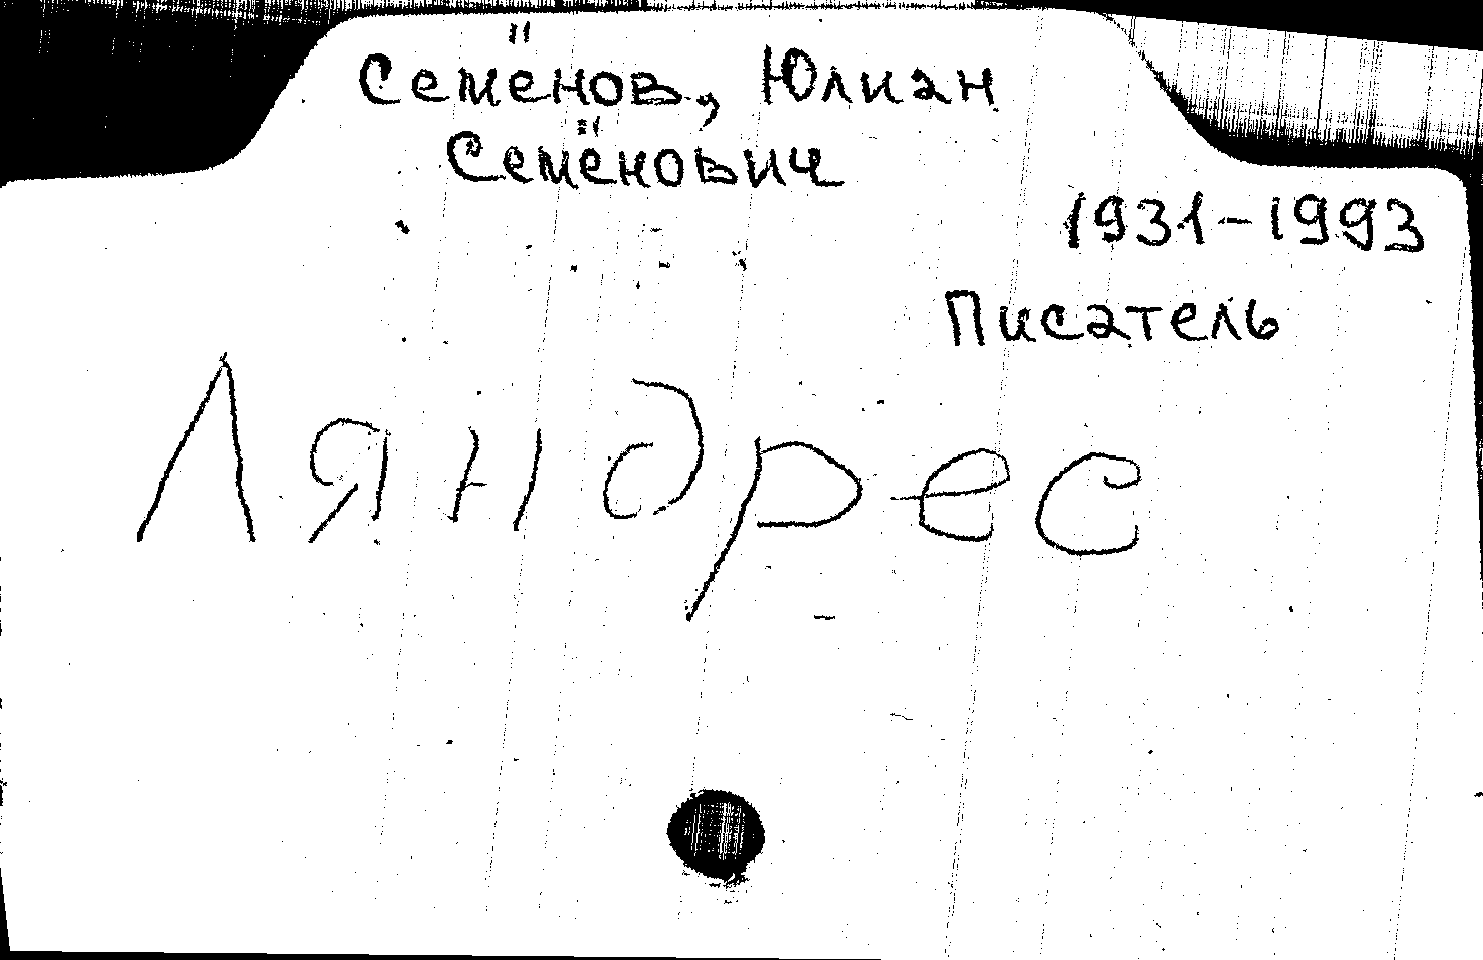 Семёнов, Юлиан
Семёнович
1931-1993
Писатель
Ляндрес